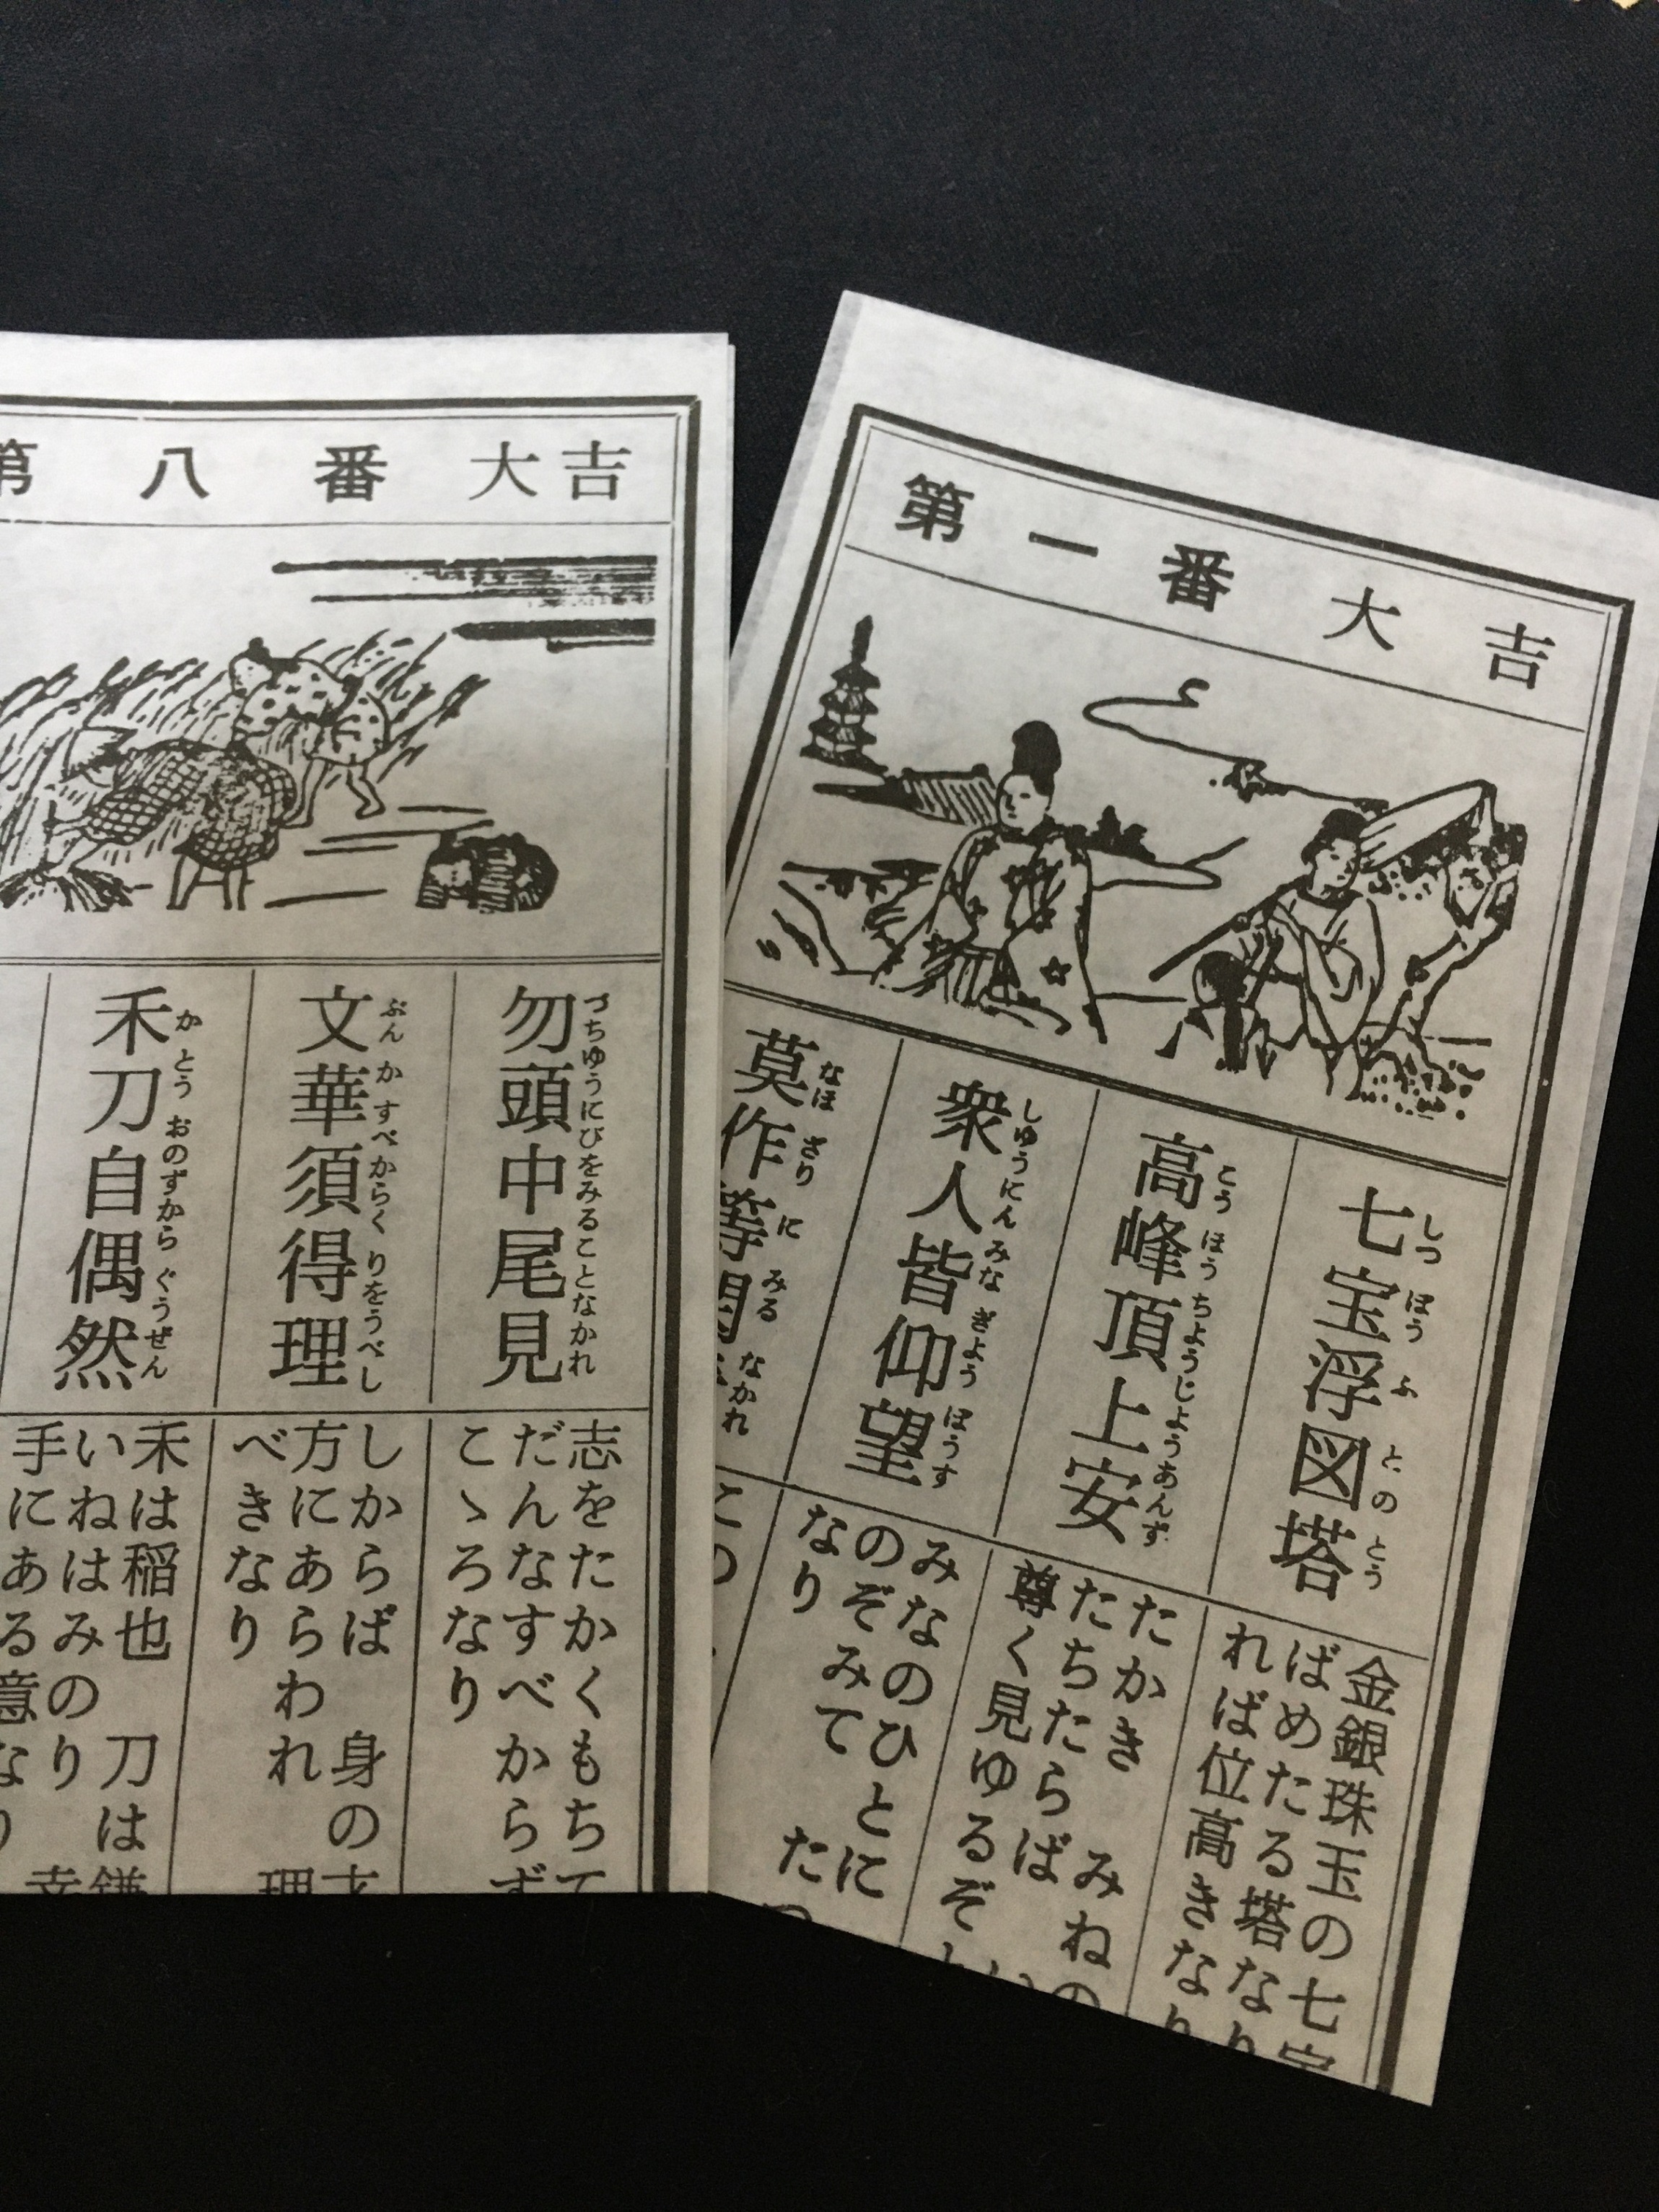 第一番大吉
七宝浮図塔
しつほうふとのとう
高峰頂上安
こうほうちようじようあんず
衆人皆仰望
しゆうにんみなぎようぼうす
莫作等閑
なほさりにみるなかれ
金銀珠玉の七宝
ばめたる塔なり
れば位高きなり
たかき みねの
たちたらば
尊く見ゆるぞ
みなのひとに
のぞみて た
なり
この
第八番大吉
勿頭中尾見
づちゆうにびをみることなかれ
文華須得理
ぶんかすべからくりをうべし
禾刀自偶然
かとうおのずからぐうぜん
志をたかくもちて
だんなすべからず
こゝろなり
しからば 身の才
方にあらわれ 理
べきなり
禾は稲也 刀は鎌
いねはみのり 幸
手にある意なり